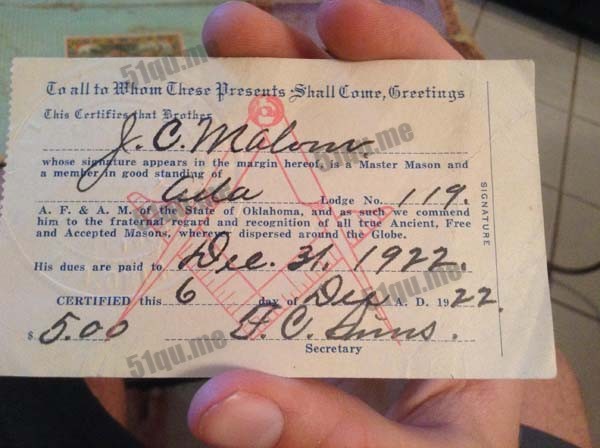 To all to Whom These Presents Shall Come, Greetings
This Certifies that Brother
J. C.
whose signature appears in the margin hereof, is a Master Mason and
a member in good standing of
Ada Lodge No. 119.
A. F. & A. M. of the State of Oklahoma, and as such we commend
him to the fraternal regard and recognition of all true Ancient, Free
and Accepted Masons, wherever dispersed around the Globe.
His dues are paid to Dec. 31, 1922.
CERTIFIED this 6 day of A. D. 1922
$ 5.00 F. C.
Secretary
SIGNATURE
51qu.me
51qu.me
51qu.me
51qu.me
51qu.me